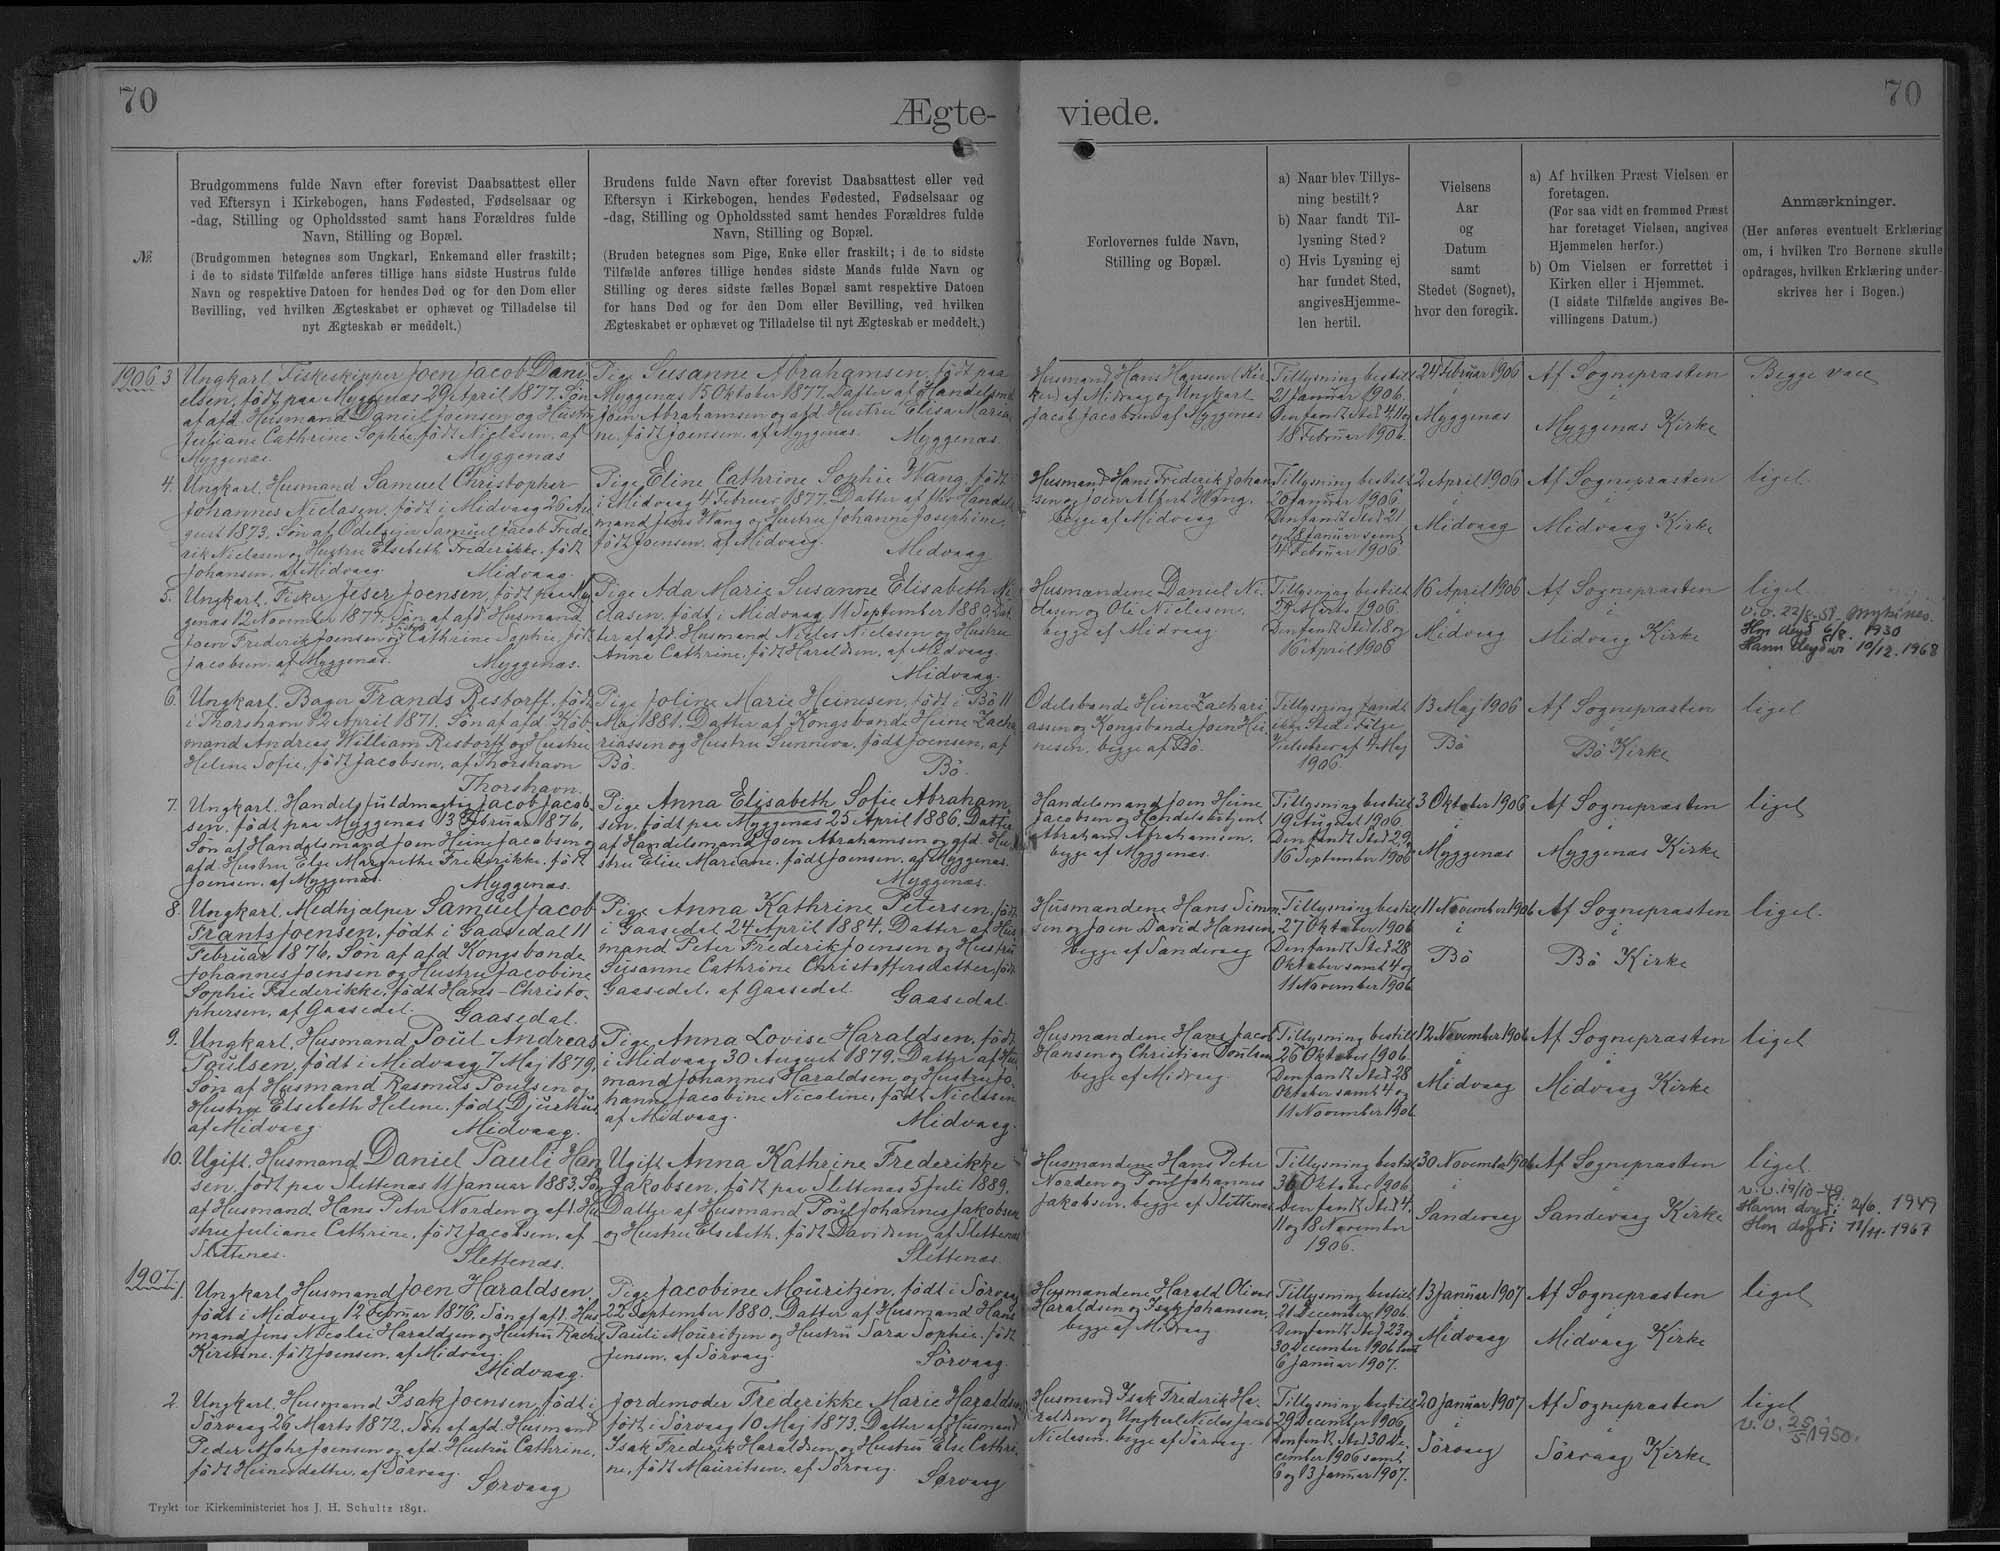 70
Ægte-
viede.
70
№
Brudgommens fulde Navn efter forevist Daabsattest eller
ved Eftersyn i Kirkebogen, hans Fødested, Fødselsaar og
-dag, Stilling og Opholdssted samt hans Forældres fulde
Navn, Stilling og Bopæl.
(Brudgommen betegnes som Ungkarl, Enkemand eller fraskilt;
i de to sidste Tilfælde anføres tillige hans sidste Hustrus fulde
Navn og respektive Datoen for hendes Død og for den Dom eller
Bevilling, ved hvilken Ægteskabet er ophævet og Tilladelse til
nyt Ægteskab er meddelt.)
Brudens fulde Navn efter forevist Daabsattest eller ved
Eftersyn i Kirkebogen, hendes Fødested, Fødselsaar og
-dag, Stilling og Opholdssted samt hendes Forældres fulde
Navn, Stilling og Bopæl.
(Bruden betegnes som Pige, Enke eller fraskilt; i de to sidste
Tilfælde anføres tillige hendes sidste Mands fulde Navn og
Stilling og deres sidste fælles Bopæl samt respektive Datoen
for hans Død og for den Dom eller Bevilling, ved hvilken
Ægteskabet er ophævet og Tilladelse til nyt Ægteskab er meddelt.)
Forlovernes fulde Navn,
Stilling og Bopæl.
a) Naar blev Tillys-
ning bestilt?
b) Naar fandt Til-
lysning Sted?
c) Hvis Lysning ej
har fundet Sted,
angives Hjemme-
len hertil.
Vielsens
Aar
og
Datum
samt
Stedet (Sognet),
hvor den foregik.
a) Af hvilken Præst Vielsen er
foretagen.
(For saa vidt en fremmed Præst
har foretaget Vielsen, angives
Hjemmelen herfor.)
b) Om Vielsen er forrettet i
Kirken eller i Hjemmet.
(I sidste Tilfælde angives Be-
villingens Datum.)
Anmærkninger.
(Her anføres eventuelt Erklæring
om, i hvilken Tro Børnene skulle
opdrages, hvilken Erklæring under-
skrives her i Bogen.)
1906 3
Ungkarl, Fiskeskipper Joen Jacob Dani
elsen, født paa Myggenæs 29 April 1877. Søn
af afd. Husmand Daniel Joensen og Hustru
Juliane Cathrine Sophie, født Niclasen, af
Myggenæs. Myggenæs
Pige Susanne Abrahamsen, født paa
Myggenæs 15 Oktober 1877. Datter af Handelsmd
Joen Abrahamsen og afd. Hustru Elisa Maria
ne, født Joensen, af Myggenæs. Myggenæs.
Husmand Hans Hansen (Kir
ken) af Midvaag og Ungkarl
Jacob Jacobsen af Myggenæs
Tillysning bestilt
21 Januar 1906.
Den fandt Sted 4, 11 og
18 Februar 1906.
24 Februar 1906
i
Myggenæs
Af Sognepræsten
i
Myggenæs Kirke
Begge vacc
4.
Ungkarl, Husmand Samuel Christopher
Johannes Niclasen, født i Midvaag 26 Au
gust 1873. Søn af Odelsejer Samuel Jacob Frede
rik Niclasen og Hustru Elsebeth Frederikke, født
Johansen, af Midvaag. Midvaag.
Pige Eline Cathrine Sophie Wang, født
i Midvaag 4 Februar 1877. Datter af fhv Handels
mand Jens Wang og Hustru Johanne Josephine,
født Joensen, af Midvaag. Midvaag
Husmand Hans Frederik Johan
sen og Joen Albert Wang,
begge af Midvaag
Tillysning bestilt
20 Januar 1906.
Den fandt Sted 21
og 28 Januar samt
4 Februar 1906
2 April 1906
i
Midvaag
Af Sognepræsten
i
Midvaag Kirke
ligel.
5.
Ungkarl, Fisker Jeser Joensen, født paa Myg
genæs 12 November 1877. Søn af afd. Husmand
Joen Frederik Joensen og Hustru Cathrine Sophie, født
Jacobsen, af Myggenæs. Myggenæs.
Pige Ada Marie Susanne Elisabeth Ni
clasen, født i Midvaag 11 September 1880. Dat
ter af afd. Husmand Niclas Niclasen og Hustru
Anna Cathrine, født Haraldsen, af Midvaag.
Midvaag.
Husmændene Daniel Ni-
clasen og Ole Niclasen,
begge af Midvaag
Tillysning bestilt
29 Marts 1906.
Den fandt Sted 1, 8 og
16 April 1906
16 April 1906
i
Midvaag
Af Sognepræsten
i
Midvaag Kirke
ligel.
v.v. 22/8-51. Mykines.
Hon deyð 6/8. 1930
Hann deyður 10/12. 1968
6.
Ungkarl, Bager Frands Restorff, født
i Thorshavn 12 April 1871. Søn af afd. Køb
mand Andreas William Restorff og Hustru
Helene Sofie, født Jacobsen, af Thorshavn
Thorshavn.
Pige Joline Marie Heinesen, født i Bö 11
Maj 1881. Datter af Kongsbonde Heine Zacha
riassen og Hustru Sunneva, født Joensen, af
Bö. Bö.
Odelsbonde Heine Zachari
assen og Kongsbonde Joen Hei
nesen, begge af Bö.
Tillysning fandt
ikke Sted ifølge
Vielsebrev af 4 Maj
1906.
13 Maj 1906
i
Bö
Af Sognepræsten
i
Bö Kirke
ligel
7.
Ungkarl, Handelsfuldmægtig Jacob Jacob
sen, født paa Myggenæs 13 Februar 1876,
Søn af Handelsmand Joen Heine Jacobsen og
afd. Hustru Else Margrethe Frederikke, født
Joensen, af Myggenæs. Myggenæs.
Pige Anna Elisabeth Sofie Abraham
sen, født paa Myggenæs 25 April 1886. Datter
af Handelsmand Joen Abrahamsen og afd. Hu
stru Elise Mariane, født Joensen, af Myggenæs.
Myggenæs.
Handelsmand Joen Heine
Jacobsen og Handelsbetjent
Abraham Abrahamsen,
begge af Myggenæs.
Tillysning bestilt
19 August 1906.
Den fandt Sted 2, 9,
16 September 1906
3 Oktober 1906
i
Myggenæs
Af Sognepræsten
i
Myggenæs Kirke
ligel
8.
Ungkarl, Medhjælper Samuel Jacob
Frants Joensen, født i Gaasedal 11
Februar 1876. Søn af afd Kongsbonde
Johannes Joensen og Hustru Jacobine
Sophie Frederikke, født Hans-Christo-
phersen, af Gaasedal. Gaasedal.
Pige Anna Kathrine Petersen, født
i Gaasedal 24 April 1884. Datter af Hus
mand Peter Frederik Joensen og Hustru
Susanne Cathrine Christoffersdatter, født
Gaasedal, af Gaasedal. Gaasedal.
Husmændene Hans Simon
sen og Joen David Hansen,
begge af Sandevaag
Tillysning bestilt
27 Oktober 1906
Den fandt Sted 28
Oktober samt 4 og
11 November 1906
11 November 1906
i
Bö
Af Sognepræsten
i
Bö Kirke
ligel.
9.
Ungkarl, Husmand Poul Andreas
Paulsen, født i Midvaag 7 Maj 1879,
Søn af Husmand Rasmus Poulsen og
Hustru Elsebeth Helene, født Djurhuus
af Midvaag. Midvaag.
Pige Anna Lovise Haraldsen, født
i Midvaag 30 August 1879. Datter af Hus
mand Johannes Haraldsen og Hustru Jo
hanne Jacobine Nicoline, født Niclasen
af Midvaag. Midvaag.
Husmændene Hans Jacob
Hansen og Christian Poulsen
begge af Midvaag.
Tillysning bestilt
26 Oktober 1906.
Den fandt Sted 28
Oktober samt 4 og
11 November 1906
12 November 1906
i
Midvaag
Af Sognepræsten
i
Midvaag Kirke
ligel
10.
Ugift, Husmand Daniel Pauli Han
sen, født paa Slettenæs 11 Januar 1883. Søn
af Husmand Hans Peter Norden og afd. Hu
stru Juliane Cathrine, født Jacobsen, af
Slettenæs. Slettenæs.
Ugift Anna Kathrine Frederikke
Jakobsen, født paa Slettenæs 5 Juli 1889.
Datter af Husmand Poul Johannes Jakobsen
og Hustru Elsebeth, født Davidsen, af Slettenæs
Slettenæs.
Husmændene Hans Peter
Norden og Poul Johannes
Jakobsen, begge af Slettenæs
Tillysning bestilt
30 Oktober 1906.
Den fandt Sted 4,
11 og 18 November
1906.
30 November 1906
i
Sandevaag
Af Sognepræsten
i
Sandevaag Kirke
ligel.
v.v. 19/10-49
Hann doyði 2/6. 1949
Hon doyði 11/11. 1967
1907.
1.
Ungkarl, Husmand Joen Haraldsen,
født i Midvaag 12 Februar 1876. Søn af afd. Hus
mand Jens Nicolai Haraldsen og Hustru Rachel
Kirstine, født Joensen, af Midvaag.
Midvaag.
Pige Jacobine Mouritzen, født i Sörvaag
22 September 1880. Datter af Husmand Hans
Pauli Mouritzen og Hustru Sara Sophie, født
Jensen, af Sörvaag. Sörvaag.
Husmændene Harald Oliver
Haraldsen og Isak Johansen,
begge af Midvaag
Tillysning bestilt
21 December 1906.
Den fandt Sted 23 og
30 December 1906 samt
6 Januar 1907.
13 Januar 1907
i
Midvaag
Af Sognepræsten
i
Midvaag Kirke
ligel
2.
Ungkarl, Husmand Isak Joensen, født i
Sörvaag 26 Marts 1872. Søn af afd. Husmand
Peder Mohr Joensen og afd. Hustru Cathrine,
født Heinesdatter, af Sörvaag. Sørvaag
Jordemoder Frederikke Marie Haraldsen
født i Sörvaag 10 Maj 1873. Datter af Husmand
Isak Frederik Haraldsen og Hustru Else Cathri-
ne, født Mauritsen, af Sörvaag. Sørvaag
Husmand Isak Frederik Ha-
raldsen og Ungkarl Niclas Jacob
Niclasen, begge af Sørvaag.
Tillysning bestilt
29 December 1906.
Den fandt Sted 30 De-
cember 1906 samt
6 og 13 Januar 1907.
20 Januar 1907
i
Sörvaag
Af Sognepræsten
i
Sörvaag Kirke
ligel
v.v. 25/5 1950.
Trykt for Kirkeministeriet hos J. H. Schultz 1891.